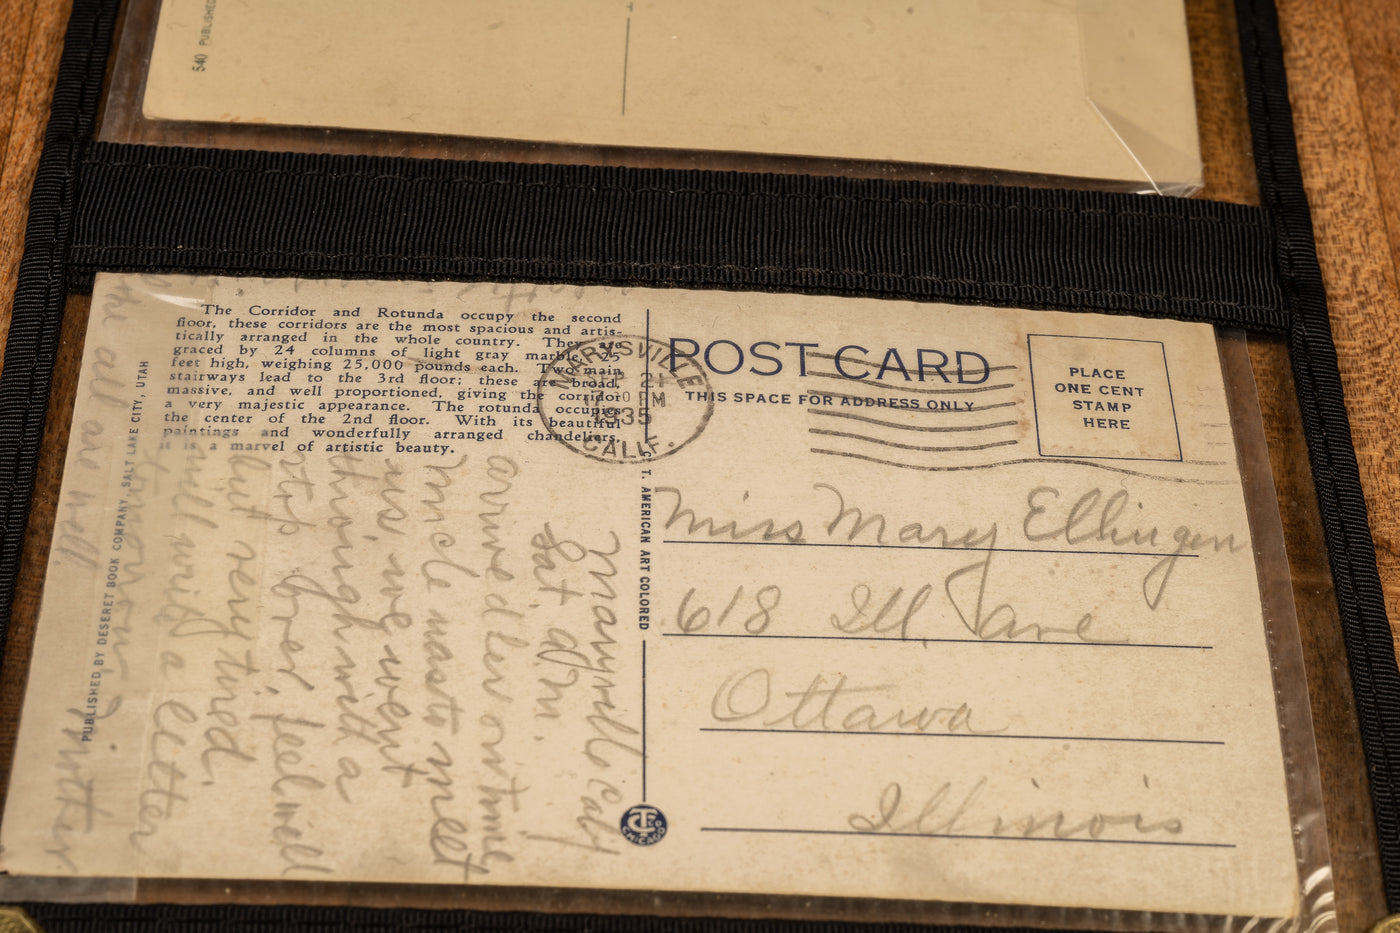 540 PUBLISHED
The Corridor and Rotunda occupy the second
floor, these corridors are the most spacious and artis-
tically arranged in the whole country. They are
graced by 24 columns of light gray marble, 25
feet high, weighing 25,000 pounds each. Two main
stairways lead to the 3rd floor; these are broad,
massive, and well proportioned, giving the corridor
a very majestic appearance. The rotunda occupies
the center of the 2nd floor. With its beautiful
paintings and wonderfully arranged chandeliers,
it is a marvel of artistic beauty.
PUBLISHED BY DESERET BOOK COMPANY, SALT LAKE CITY, UTAH
Marysville Caly
Sat. am.
arrived here on time
Uncle was to meet
us we went
through with a
stop over. feel well
but very tired.
will write a letter
all are well.
Mother
C. T. AMERICAN ART COLORED
CHICAGO
MARYSVILLE
21
PM
1935
CALIF.
POST CARD
THIS SPACE FOR ADDRESS ONLY
PLACE
ONE CENT
STAMP
HERE
Miss Mary Ellingen
618 Ill. ave
Ottawa
Illinois